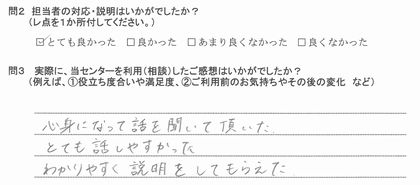 問2 担当者の対応・説明はいかがでしたか？
(レ点を1か所付してください。)
☑とても良かった □良かった □あまり良くなかった □良くなかった
問3 実際に、当センターを利用(相談)したご感想はいかがでしたか？
(例えば、①役立ち度合いや満足度、②ご利用前のお気持ちやその後の変化 など)
心身になって話を聞いて頂いた.
とても話しやすかった
わかりやすく説明をしてもらえた.